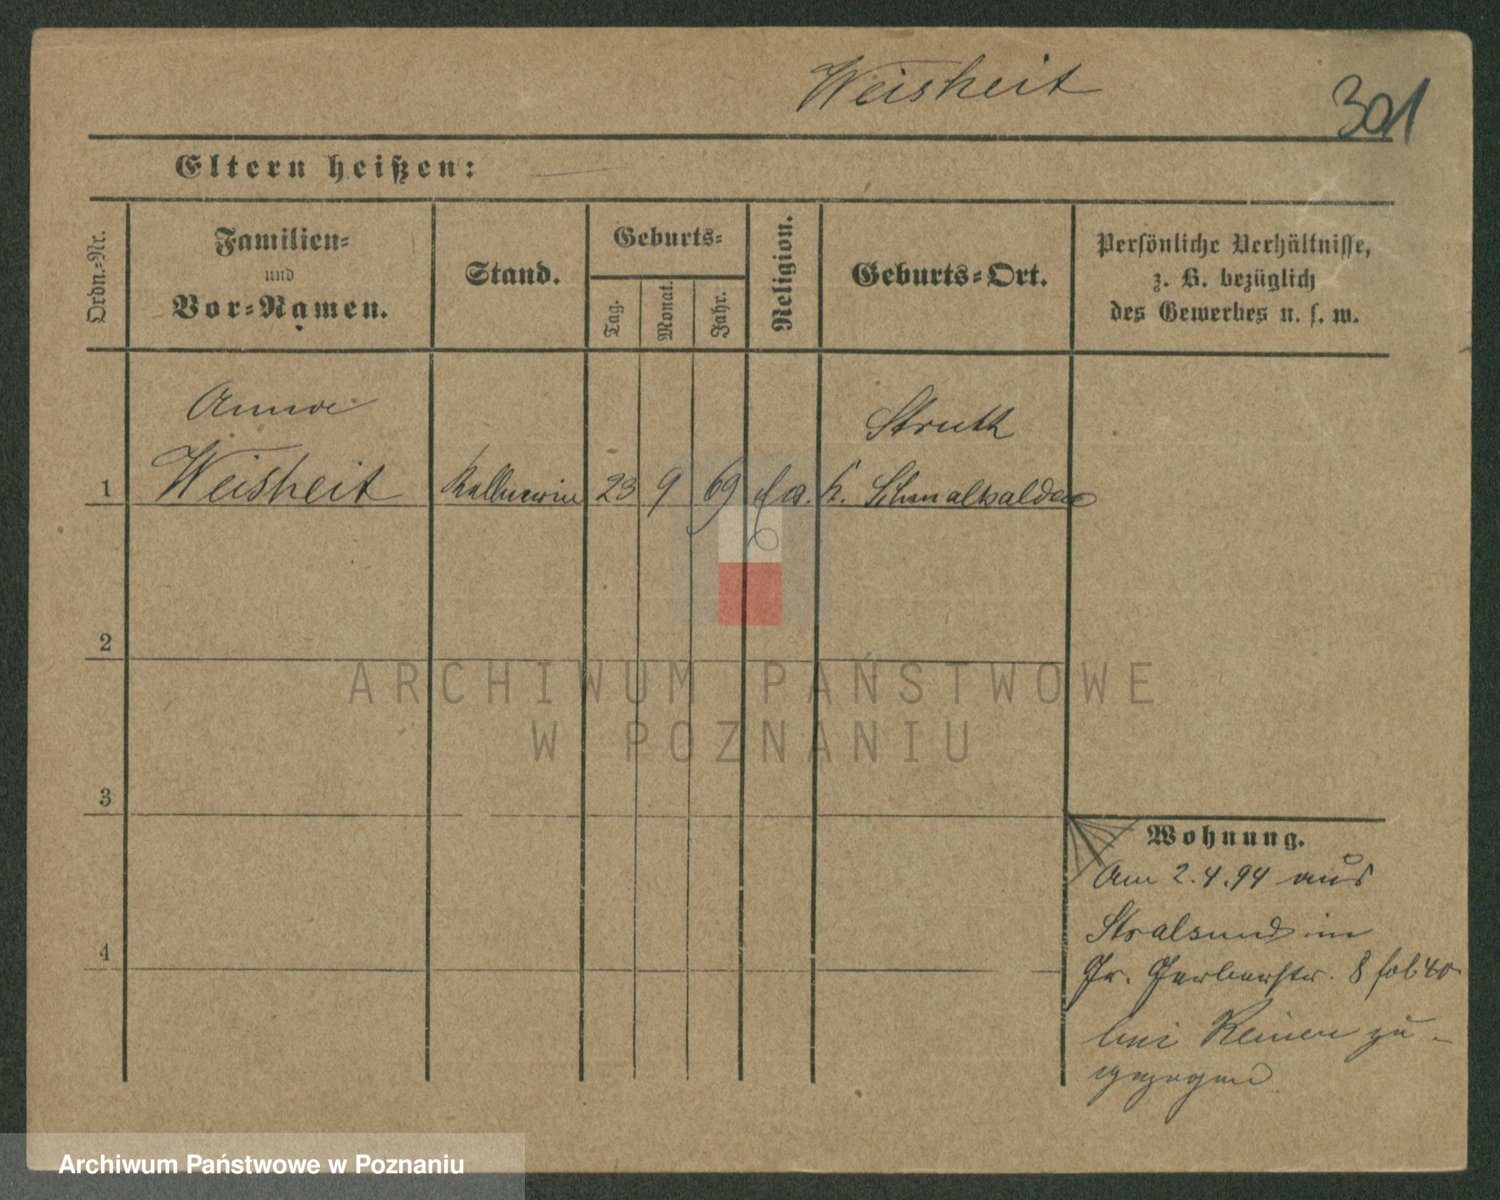 Weisheit
301
Eltern heißen:
Ordn.-Nr.
Familien-
und
Vor-Namen.
Stand.
Geburts-
Tag.
Monat.
Jahr.
Religion.
Geburts-Ort.
Persönliche Verhältnisse,
z. B. bezüglich
des Gewerbes u. s. w.
Anna
Struth
1 Weisheit Kellnerin 23 9 69 K. Schmalkalden
2
3
4
Wohnung.
Am 2.4.94 aus
Stralsund in
Gr. Gerberstr. 8
bei Reimer zu-
gezogen
ARCHIWUM PAŃSTWOWE
W POZNANIU
Archiwum Państwowe w Poznaniu